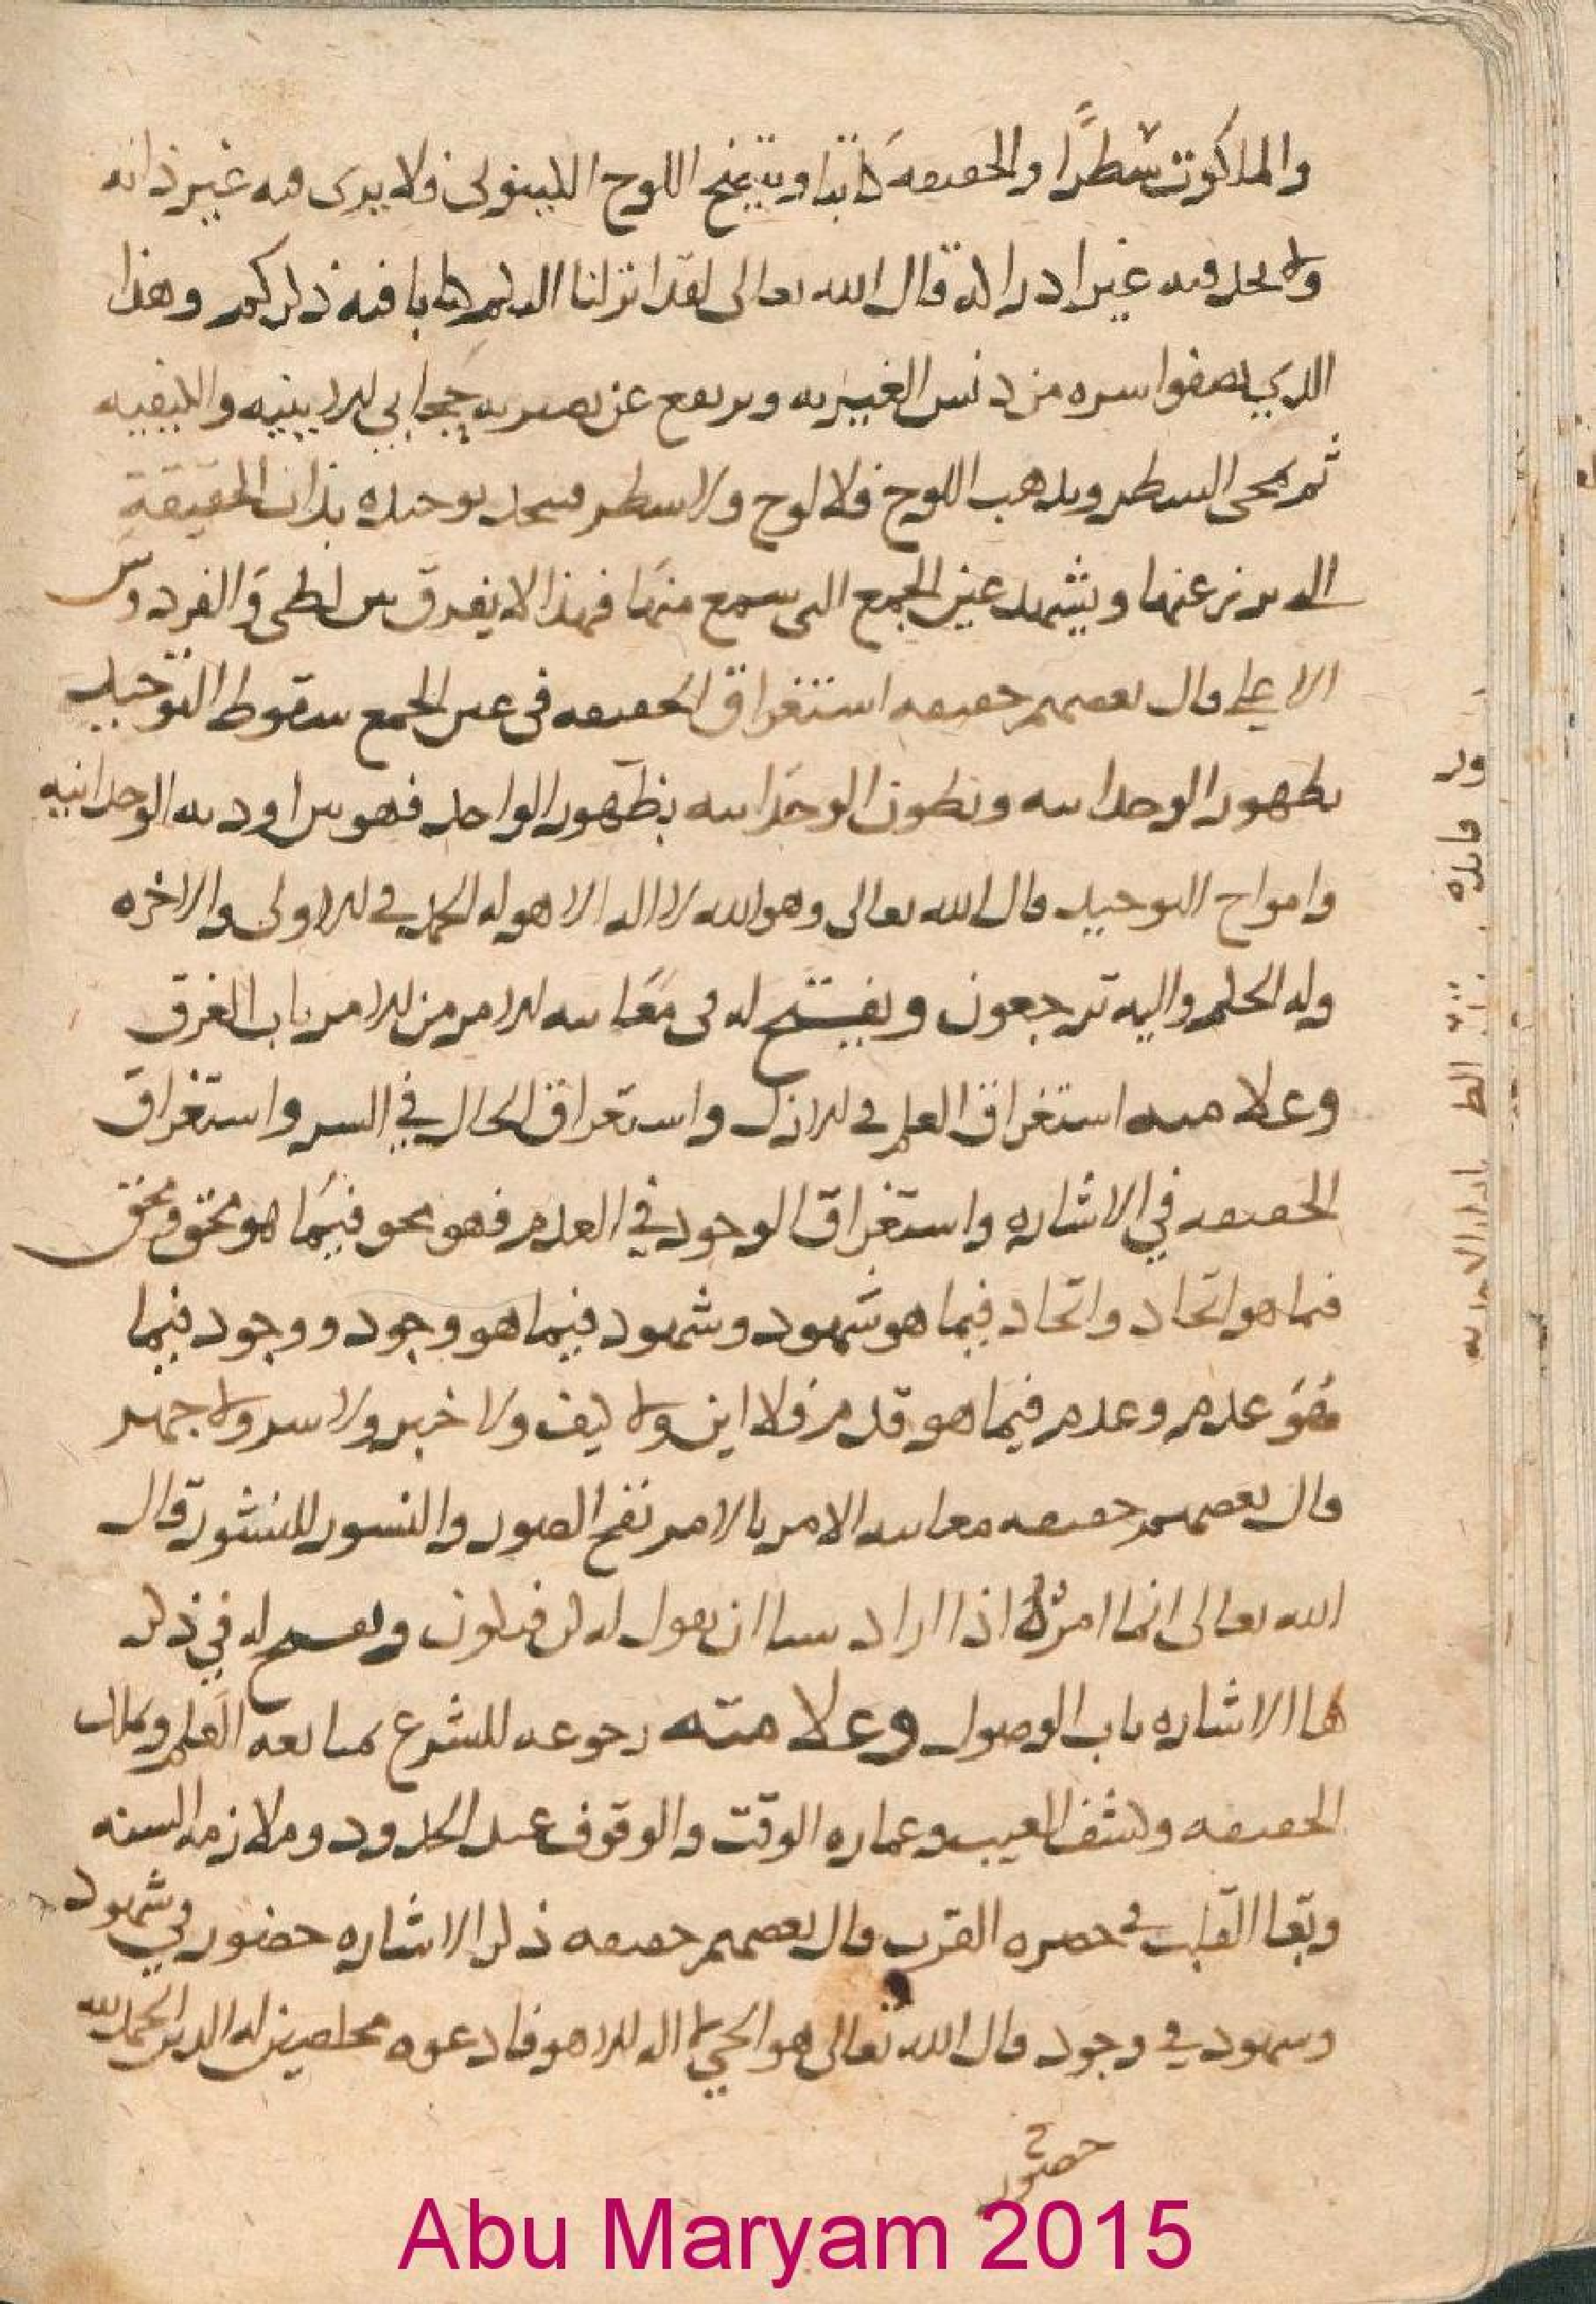 والملكوت سطرًا والحقيقة كاتبا ويتضح اللوح التكويني فلا يرى فيه غير ذاته
ولا يجد فيه غير ادراكه قال الله تعالى لقد انزلنا اليكم كتابا فيه ذكركم وهذا
الذي يصفوا سره من دنس الغيريه ويرتفع عن بصيرته حجابي الاينيه والكيفيه
ثم يمحى السطر ويذهب اللوح فلا لوح ولا سطر فيتحد توحيده بذات الحقيقة
التي برز عنها ويشهد عين الجمع التي سمع منها فهذا لا يفرق بين لظى والفردوس
الاعلى قال بعضهم حقيقه استغراق الحقيقه في عين الجمع سقوط التوحيد
بظهور الوحدانيه وبطون الوحدانيه بظهور الواحد فهو بين اوديه الوحدانيه
وامواج التوحيد قال الله تعالى وهو الله لا اله الا هو له الحمد في الاولى والاخره
وله الحكم واليه ترجعون ويفتتح له في معاينه الامر من الامر باب الغرق
وعلامته استغراق العلم في الازل واستغراق الحال في السر واستغراق
الحقيقه في الاشاره واستغراق الوجود في العدم فهو محو فيما هو محق ومحق
فيما هو اتحاد واتحاد فيما هو شهود وشهود فيما هو وجود ووجود فيما
هو عدم وعدم فيما هو قدم فلا اين ولا كيف ولا خبر ولا سر ولا جهر
قال بعضهم حقيقه معاينه الامر بالامر نفخ الصور والنسور للنشور قال
الله تعالى انما امره اذا اراد شيا ان يقول له كن فيكون ويفتح له في ذكر
هاا الاشاره باب الوصول وعلامته رجوعه للشرع بمتابعه العلم وكمال
الحقيقه وكشف الغيب وعماره الوقت والوقوف عند الحدود وملازمه السنه
وبقا القلب في حضره القرب قال بعضهم حقيقه ذكر الاشاره حضور في شهود
وشهود في وجود قال الله تعالى هو الحي لا اله الا هو فادعوه مخلصين له الدين الحمد لله
حضور
Abu Maryam 2015